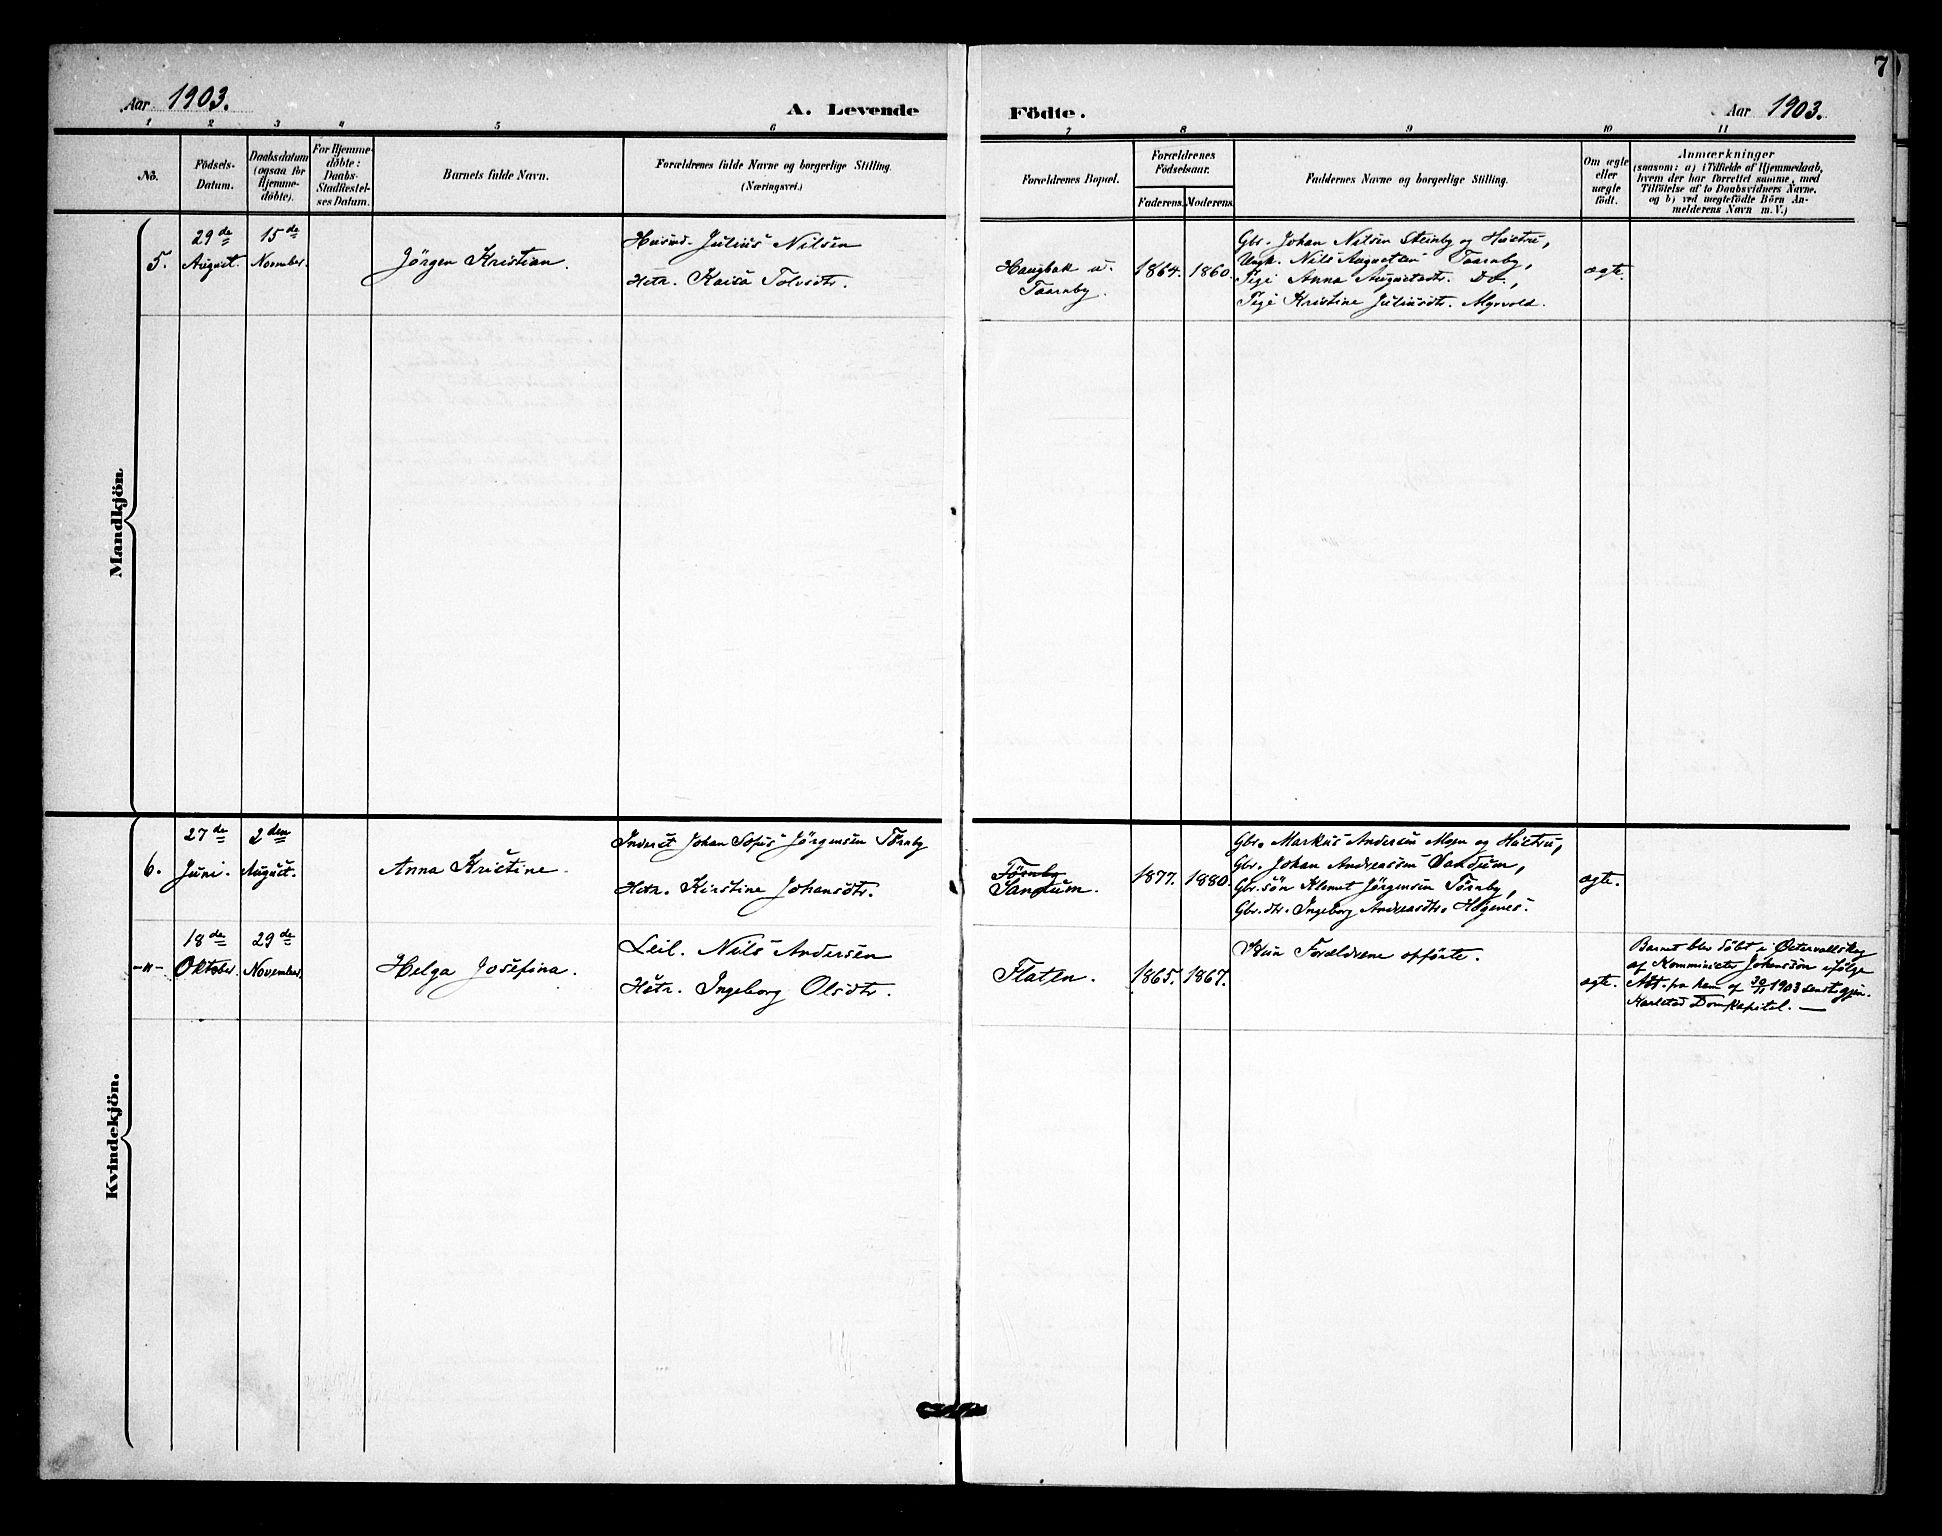 7
Aar 1903.
A. Levende
Födte.
Aar 1903.
1 2 3 4 5 6 7 8 9 10 11
No.
Födsels-
Datum.
Daabsdatum
(ogsaa for
Hjemme-
döbte).
For Hjemme-
döbte:
Daabs-
Stadfæstel-
ses Datum.
Barnets fulde Navn.
Forældrenes fulde Navne og borgerlige Stilling.
(Næringsvei.)
Forældrenes Bopæl.
Forældrenes
Födselsaar.
Faderens. Moderens.
Faddernes Navne og borgerlige Stilling.
Om ægte
eller
uægte
født.
Anmærkninger
(saasom: a) i Tilfælde af Hjemmedaab,
hvem der har forrettet samme, med
Tilføielse af to Daabsvidners Navne,
og b) ved uægtefödte Börn An-
melderens Navn m. V.)
Mandkjön
5.
29de
August.
15de
November.
Jörgen Kristian.
Husmd. Julius Nilsen
Hstr. Kaisa Tolvsdtr.
Haugbak u.
Taarnby.
1864. 1860.
Gbr. Johan Nilsen Steinby og Hustru,
Ungk. Nils Augustsen Taarnby,
Pige Anna Augustsdtr. Do.,
Pige Kristine Juliusdtr. Myrvold.
ægte.
Kvindekjön.
6.
27de
Juni.
2den
August.
Anna Kristine.
Inderst Johan Sofus Jörgensen Törnby
Hstr. Kirstine Johansdtr.
Törnby
Sandum.
1877. 1880.
Gbr. Markus Andersen Moen og Hustru,
Gbr. Johan Andreassen Sandum,
Gbr.sön Klemet Jörgensen Törnby,
Gbr.dtr. Ingeborg Andreasdtr. Högenes.
ægte.
-"-
18de
Oktober.
29de
November.
Helga Josefina.
Leil. Nils Andersen
Hstr. Ingeborg Olsdtr.
Flaten.
1865. 1867.
Kun Forældrene opförte.
ægte.
Barnet blev döbt i Östervallskog
af Komminister Johansson ifölge
Att. fra ham af 30/11 1903 sendt gjen.
Karlstad Domkapitel. —